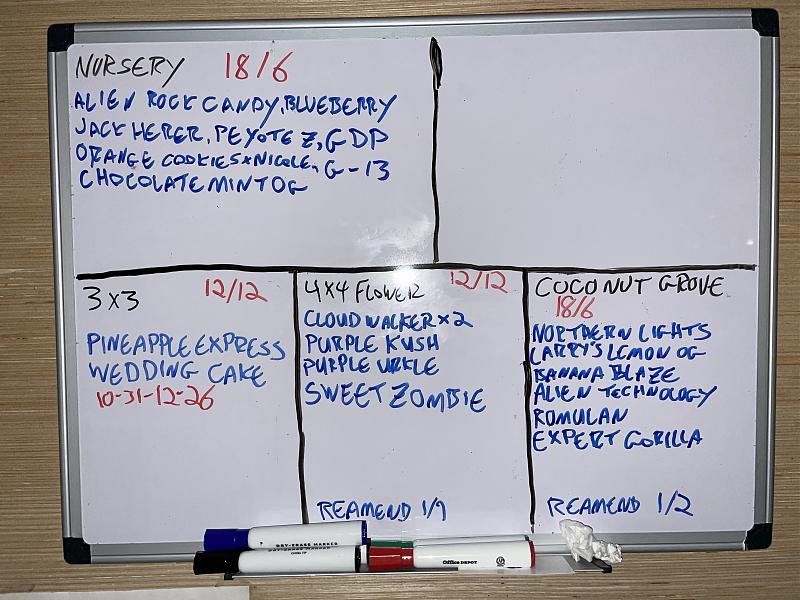 NURSERY 18/6
ALIEN ROCK CANDY, BLUEBERRY
JACK HERER, PEYOTE Z, GDP
ORANGE COOKIES X NICOLE, G-13
CHOCOLATE MINT OG
3X3 12/12
PINEAPPLE EXPRESS
WEDDING CAKE
10-31-12-26
4X4 FLOWER 12/12
CLOUD WALKER X2
PURPLE KUSH
PURPLE URKLE
SWEET ZOMBIE
REAMEND 1/9
COCONUT GROVE
18/6
NORTHERN LIGHTS
LARRY'S LEMON OG
BANANA BLAZE
ALIEN TECHNOLOGY
ROMULAN
EXPERT GORILLA
REAMEND 1/2
DRY-ERASE MARKER
DRY-ERASE MARKER
Office DEPOT